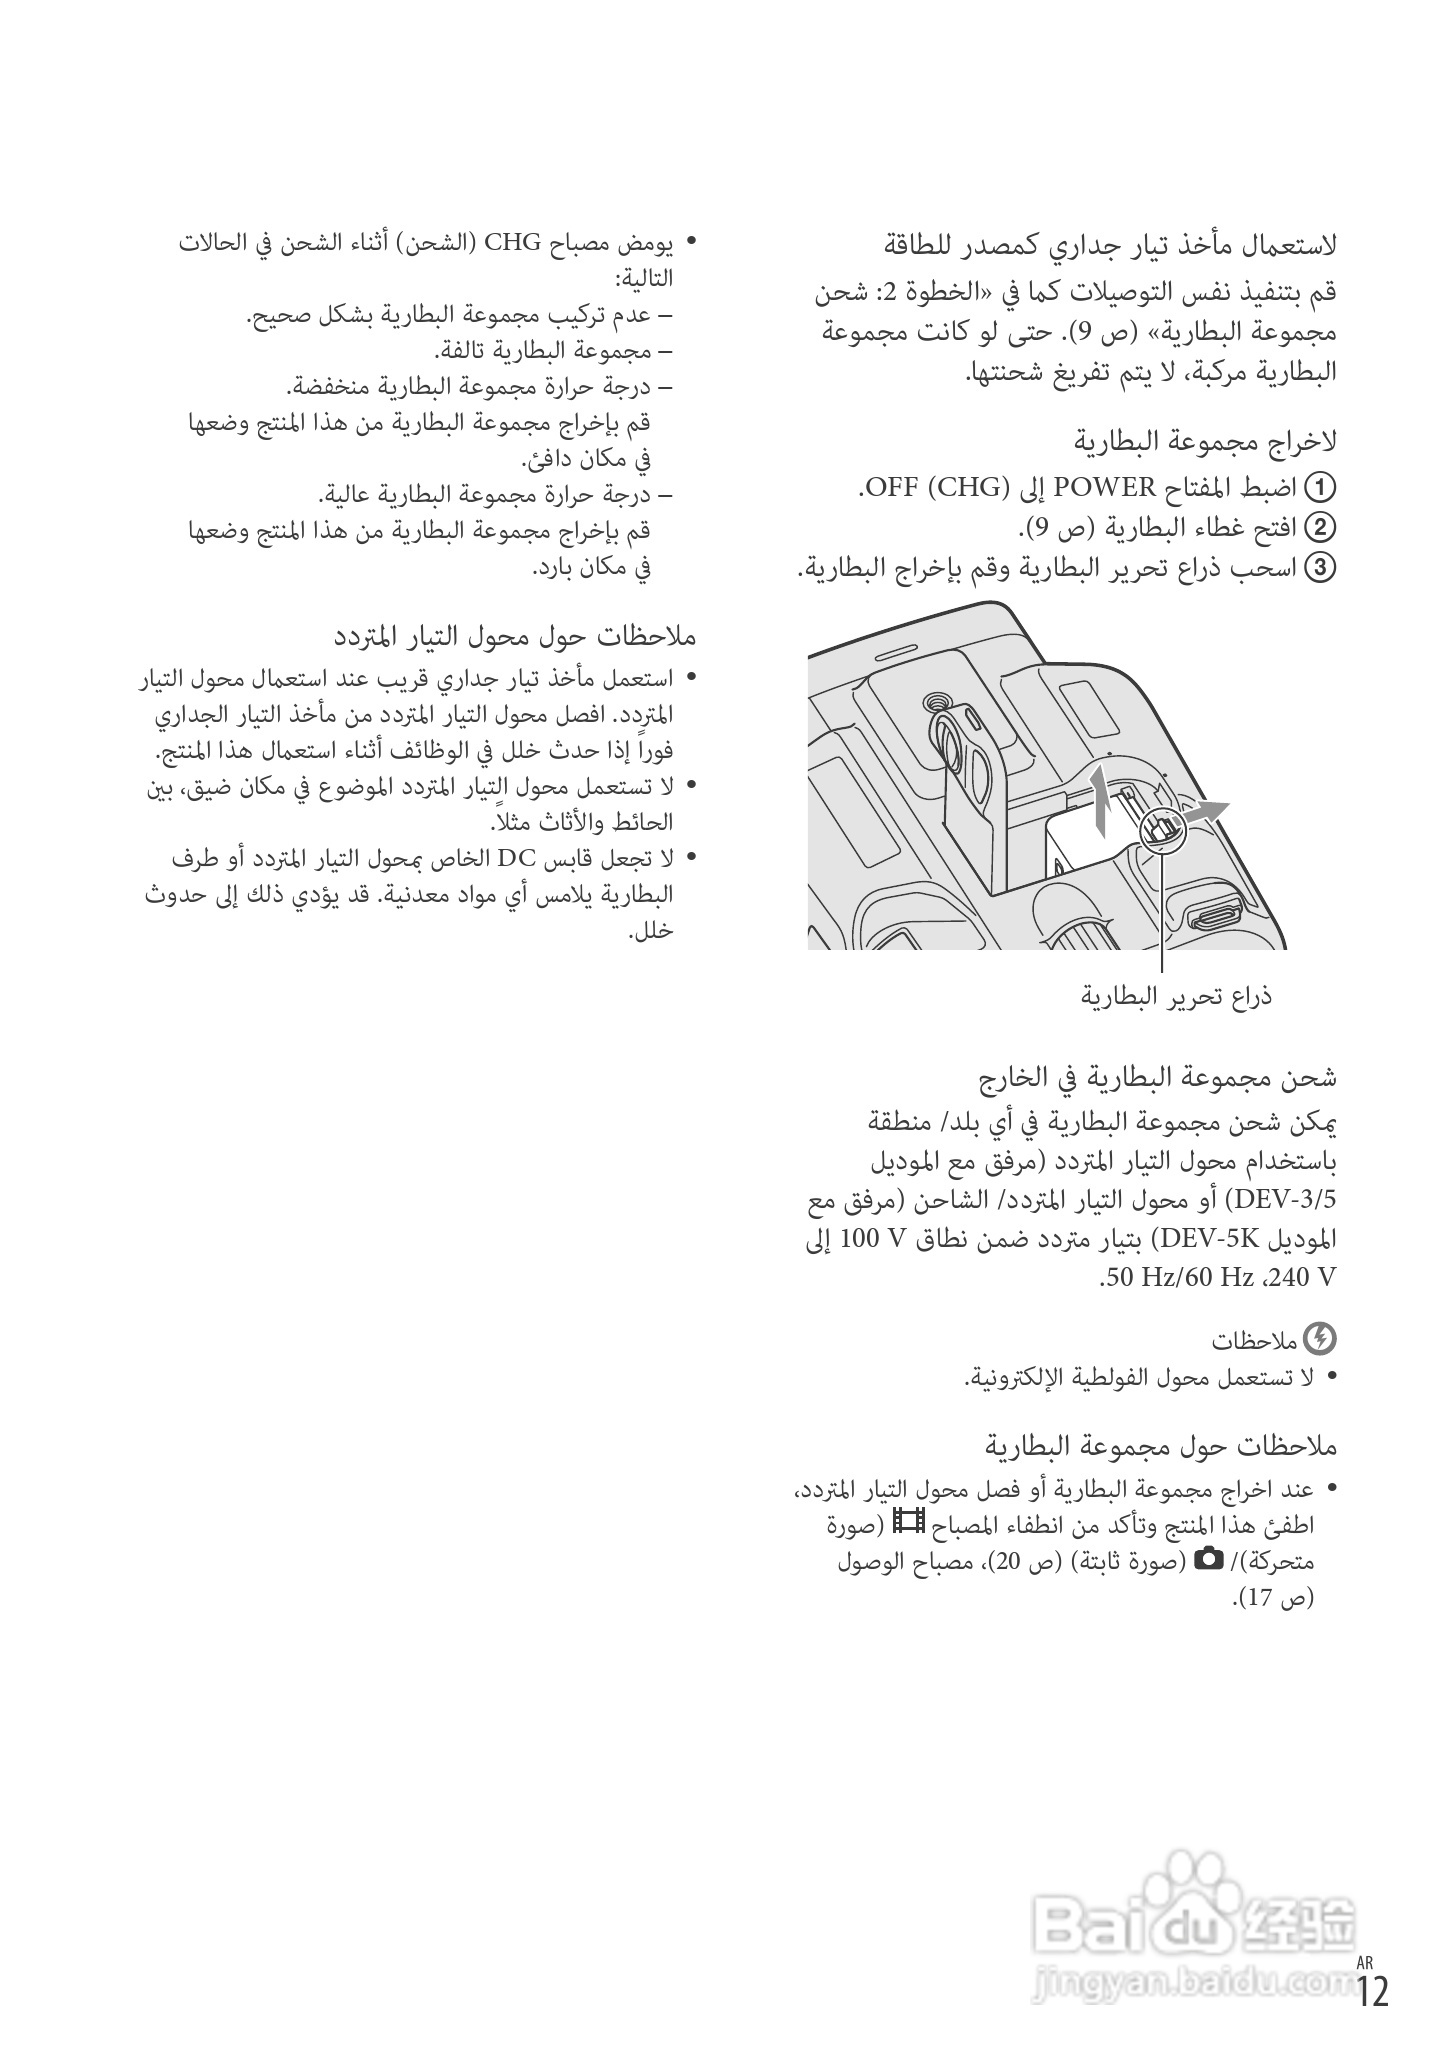 لاستعمال مأخذ تيار جداري كمصدر للطاقة
قم بتنفيذ نفس التوصيلات كما في «الخطوة 2: شحن
مجموعة البطارية» (ص 9). حتى لو كانت مجموعة
البطارية مركبة، لا يتم تفريغ شحنتها.
لاخراج مجموعة البطارية
① اضبط المفتاح POWER إلى OFF (CHG).
② افتح غطاء البطارية (ص 9).
③ اسحب ذراع تحرير البطارية وقم بإخراج البطارية.
ذراع تحرير البطارية
شحن مجموعة البطارية في الخارج
يمكن شحن مجموعة البطارية في أي بلد/ منطقة
باستخدام محول التيار المتردد (مرفق مع الموديل
DEV-3/5) أو محول التيار المتردد/ الشاحن (مرفق مع
الموديل DEV-5K) بتيار متردد ضمن نطاق 100 V إلى
240 V، 50 Hz/60 Hz.
ملاحظات
• لا تستعمل محول الفولطية الإلكترونية.
ملاحظات حول مجموعة البطارية
• عند اخراج مجموعة البطارية أو فصل محول التيار المتردد،
اطفئ هذا المنتج وتأكد من انطفاء المصباح (صورة
متحركة)/ (صورة ثابتة) (ص 20)، مصباح الوصول
(ص 17).
• يومض مصباح CHG (الشحن) أثناء الشحن في الحالات
التالية:
– عدم تركيب مجموعة البطارية بشكل صحيح.
– مجموعة البطارية تالفة.
– درجة حرارة مجموعة البطارية منخفضة.
قم بإخراج مجموعة البطارية من هذا المنتج وضعها
في مكان دافئ.
– درجة حرارة مجموعة البطارية عالية.
قم بإخراج مجموعة البطارية من هذا المنتج وضعها
في مكان بارد.
ملاحظات حول محول التيار المتردد
• استعمل مأخذ تيار جداري قريب عند استعمال محول التيار
المتردد. افصل محول التيار المتردد من مأخذ التيار الجداري
فوراً إذا حدث خلل في الوظائف أثناء استعمال هذا المنتج.
• لا تستعمل محول التيار المتردد الموضوع في مكان ضيق، بين
الحائط والأثاث مثلاً.
• لا تجعل قابس DC الخاص بمحول التيار المتردد أو طرف
البطارية يلامس أي مواد معدنية. قد يؤدي ذلك إلى حدوث
خلل.
Baidu 经验
jingyan.baidu.com
AR
12